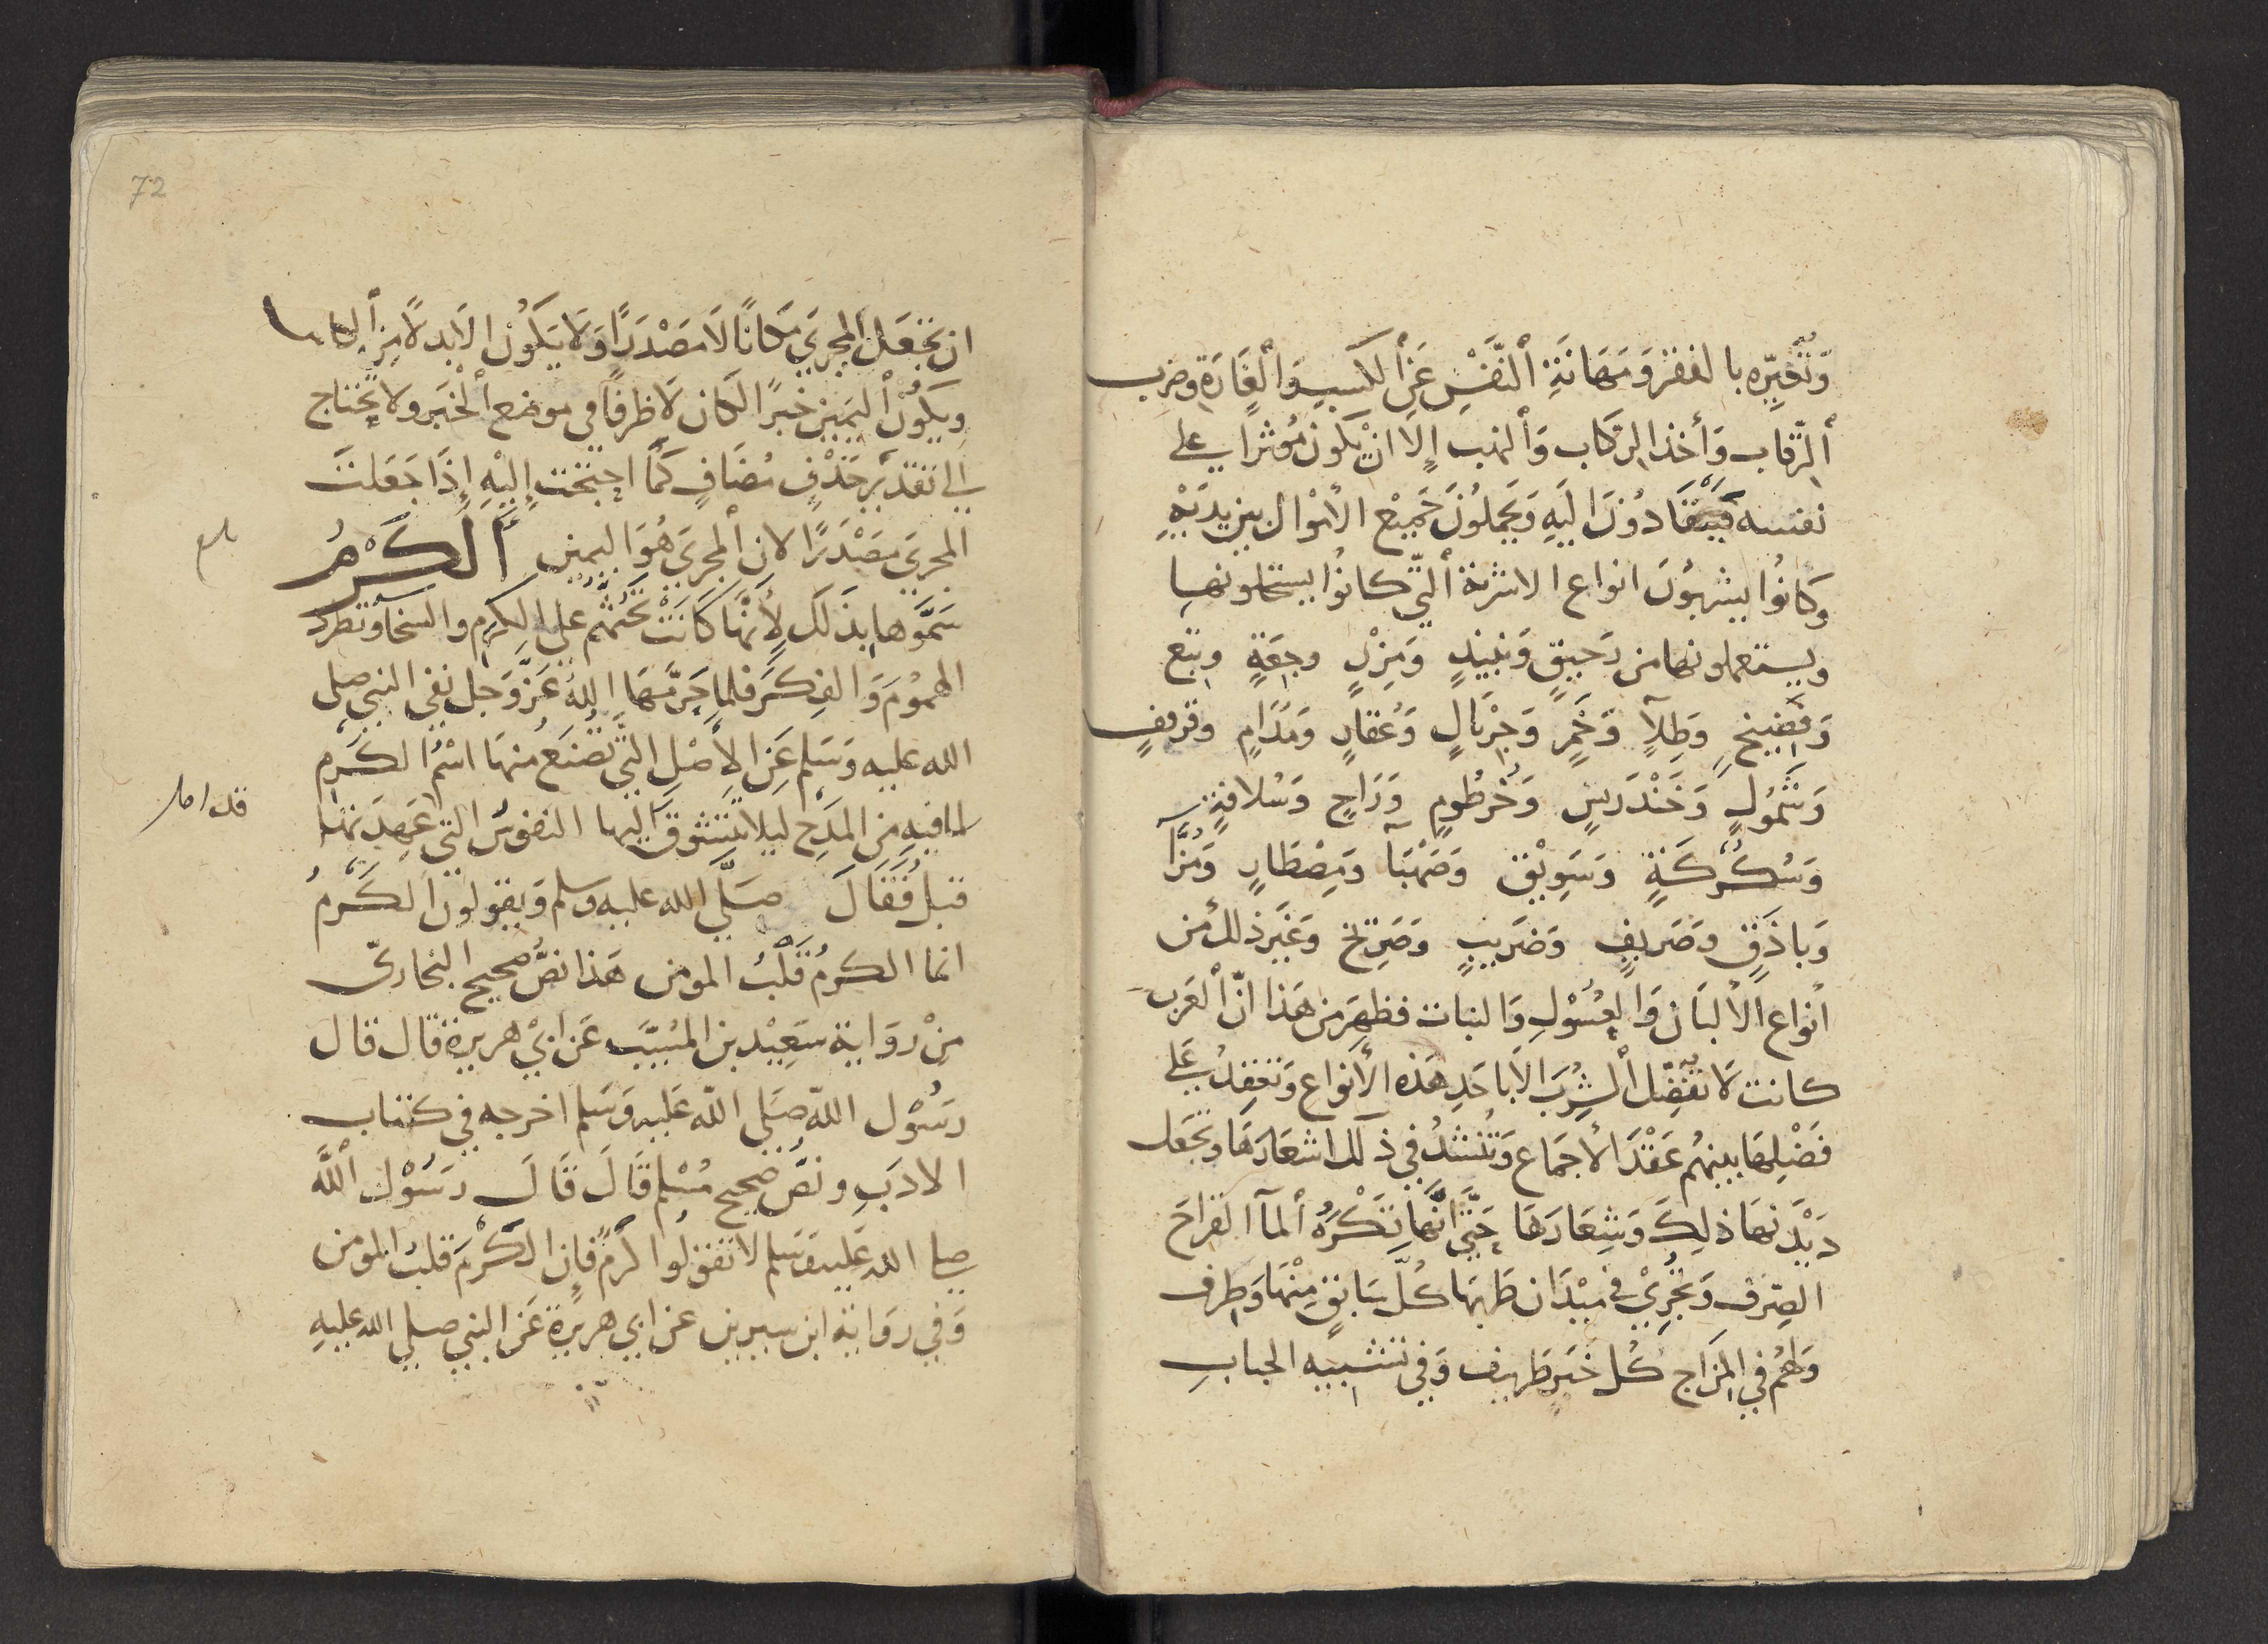 وَتُعَيِّره بالفقر وَمَهَانَةِ ألنَّفْسِ عَنِ ألكسبِ وَألْغَارَةِ وضرب
ألرِّقاب وَأخذ الركاب وَألنهب إلا انْ يكون مُوثرا على
نفسه فَيَنْقَادُونَ اليَهِ وَيَحْمِلُونَ جَمِيْعَ الأمْوال بين يديَهْ
وكَانُوْا يشربُوْنَ انواع الاشربة ألتِّي كانوْا
ويستعملونها من رَحيِقٍ وَنبيذٍ وَمِزْرٍ وجِعَةٍ وبتع
وَفَضِيْخٍ وَطِلآٍ وَخَمْرٍ وَجِرْيَالٍ وَعُقارٍ وَمُدَامٍ وقرقفٍ
وَشَمُولٍ وَخَنْدَرِيسٍ وَخُرطُومٍ وَرَاحٍ وَسُلافةٍ
وَسُكُرْكَةٍ وَسَوِيْق وَصَهْبَآ وَمِصْطَارٍ وَمُزَّآ
وَبَاذَقٍ وَصَريفٍ وَضَريبٍ وَصَرِيْحٍ وَغَيَرِ ذلك من
أنواع الألبَان وَالعُسُوْلِ وَالنبات فظهِرَ من هَذا انّ ألعَرب
كانت لا تفضّل ألشُربَ الا باحَدِ هَذه الأنواع وَتعقدُ عَلى
فَضْلِهَا بينهُم عَقْدَ الأجمَاع وَتُنشدُ في ذلك اشعَارَهَا وتجَعل
دَيْدَنهَا ذلِكَ وَشِعَارَهَا حَتىَّ انَّها تَكْرَهُ ألمآ القراحَ
الصِّرف وَتجُرِيْ في مَيْدَان طربهَا كُلّ سَابقٍ مِنْهَا وَطرف
وَلهُم في المَزاج كُل خَبرٍ ظريف وَفي تشبيه الحباب
72
ان تجْعَل المجري مكَانًا لاَ مَصْدَرًا وَلاَ يَكوُن الاَ بدلاً مِن ألكاس
ويَكوُنُ أليمَين خبرًا لكان لاَ ظرفًا في موضع ألخبَر ولا تحْتاج
إلى تقديَر حَذْفِ مُضَافٍ كَمَا احتَجْت إِليْهِ إِذَا جَعَلتَ
المجري مصَدْرًا لان ألمجرَي هُوَ اليمين ألكَرْمُ
سَمَّوها بذَلكَ لأَنَّهَا كَانَتْ تَحُثُّهُم عَلى الكرم والسخآ وتطردُ
الهمُوْمَ وَالفِكَر فلما حَرّمَهَا اللهُ عَزَّ وَجَل نَفي النبيّ صلى
الله عليه وَسَلم عَنِ الأصْلِ التيّ تصُنَع مُنهَا اسْمُ الكَرْم
لما فيهِ مِنَ المَدح ليلا تتشوقَ اليها النفوسُ التي عَهِدَتها
قبلُ فقَالَ صَلَّى الله عليه وسلم وَيقولونَ الكَرْمُ
انما الكرمُ قَلْبُ المومن هَذا نصُّ صحيح البخاريّ
مِنْ رِوَاية سَعِيْد بن المُسيّبَ عَن ابيْ هريرة قال قال
رسَوُل اللهّ صَلى اللهّ عَليه وَسَلم اخرجه في كتاب
الادَبِ ونصُّ صَحيح مُسْلِم قَالَ قَالَ رسَوُل أللهَّ
صلى الله عَليه وَسَلم لا تقوْلوُا كرْمٌ فإن الكَرْمَ قلبُ المومن
وَفي رِوَاية ابن سيرين عن ابي هريرة عَن النبي صلى الله عليهِ